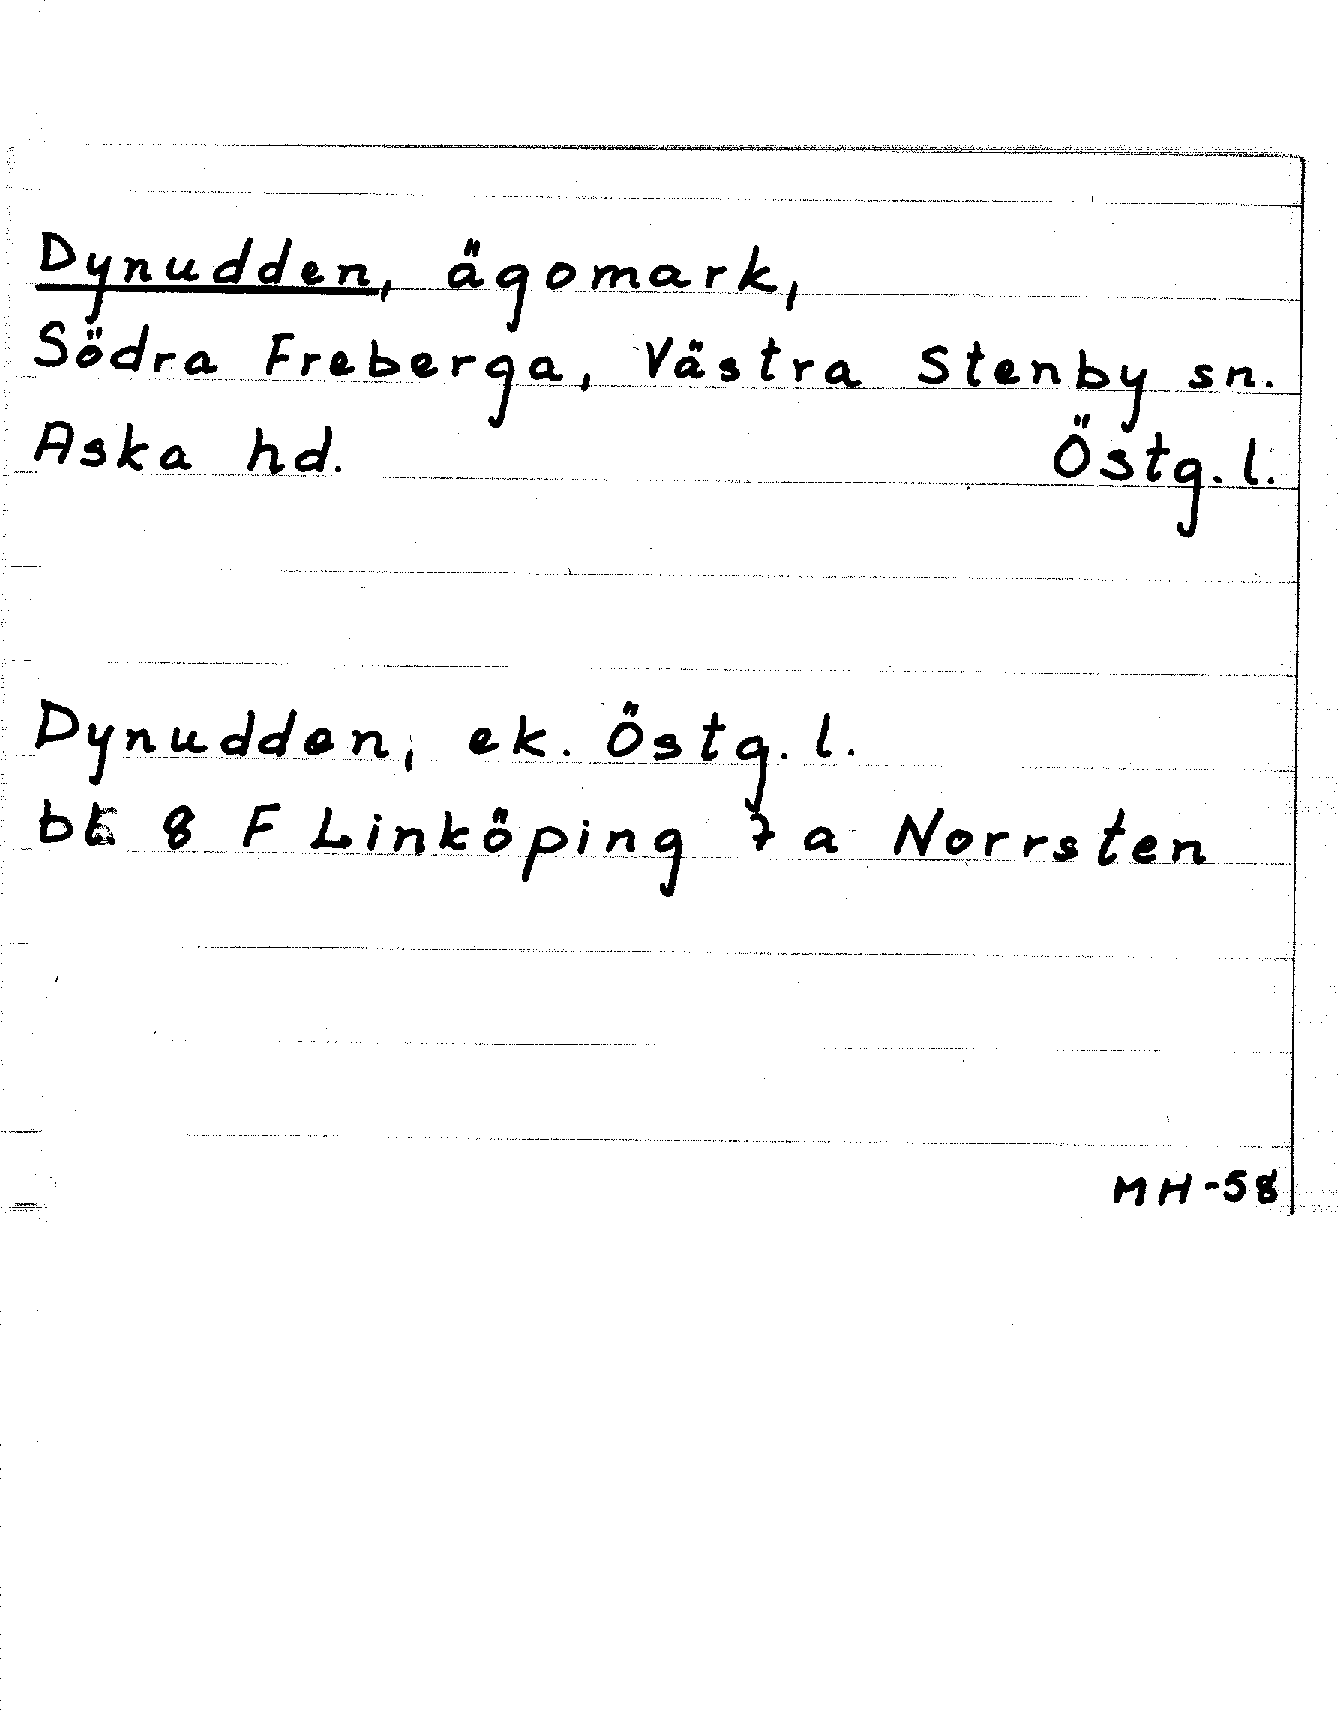 Dynudden, ägomark,
Södra Freberga, Västra Stenby sn.
Aska hd. Östg. l.
Dynudden, ek. Östg. l.
bl 8 F Linköping 7 a Norrsten
MH-58